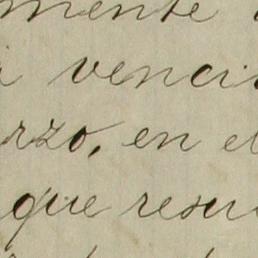 mente
venci
rzo, en el
que resu